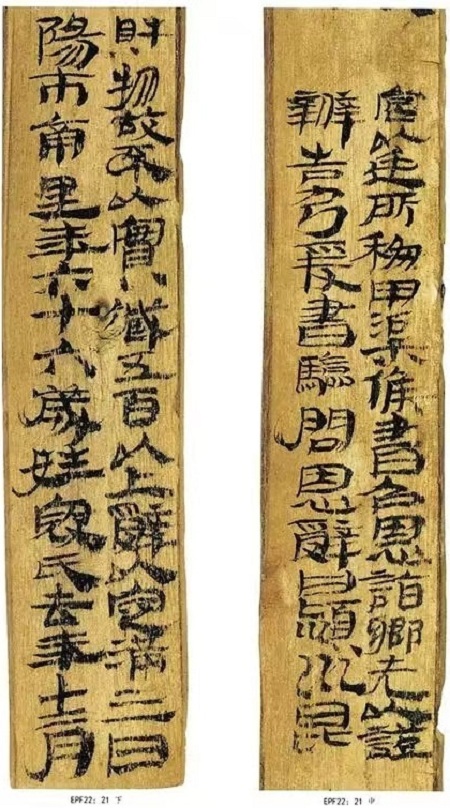 宮以廷所移甲渠候書召恩詣鄉先以證
辨告乃爰書驗問恩辭曰潁川昆
財物故不以實臧五百以上辭以定滿三日
陽市南里年六十六歲姓寇氏去年十二月
EPF22: 21 中
EPF22: 21 下